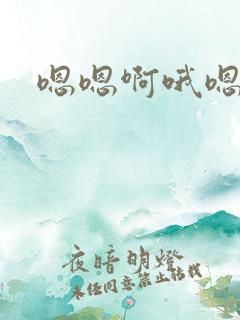 嗯嗯啊哦嗯
夜暗明燈
未任同意禁止转载